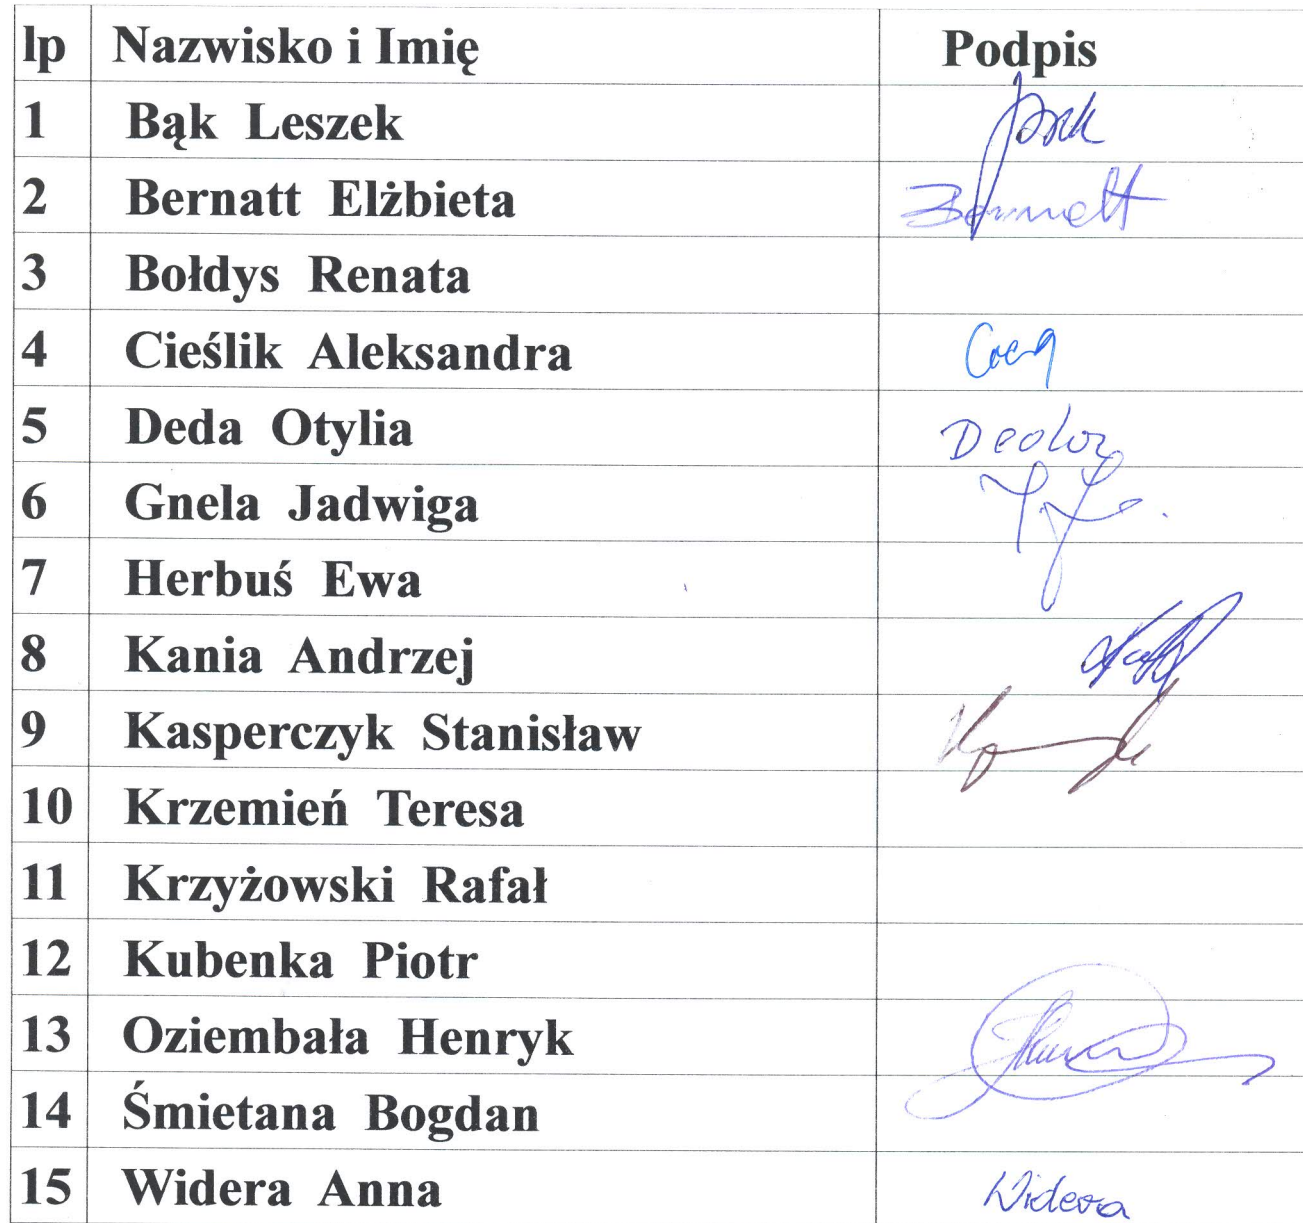 lp Nazwisko i Imię Podpis
1 Bąk Leszek
2 Bernatt Elżbieta Bernatt
3 Bołdys Renata
4 Cieślik Aleksandra
5 Deda Otylia Deda
6 Gnela Jadwiga
7 Herbuś Ewa
8 Kania Andrzej
9 Kasperczyk Stanisław
10 Krzemień Teresa
11 Krzyżowski Rafał
12 Kubenka Piotr
13 Oziembała Henryk
14 Śmietana Bogdan
15 Widera Anna Widera